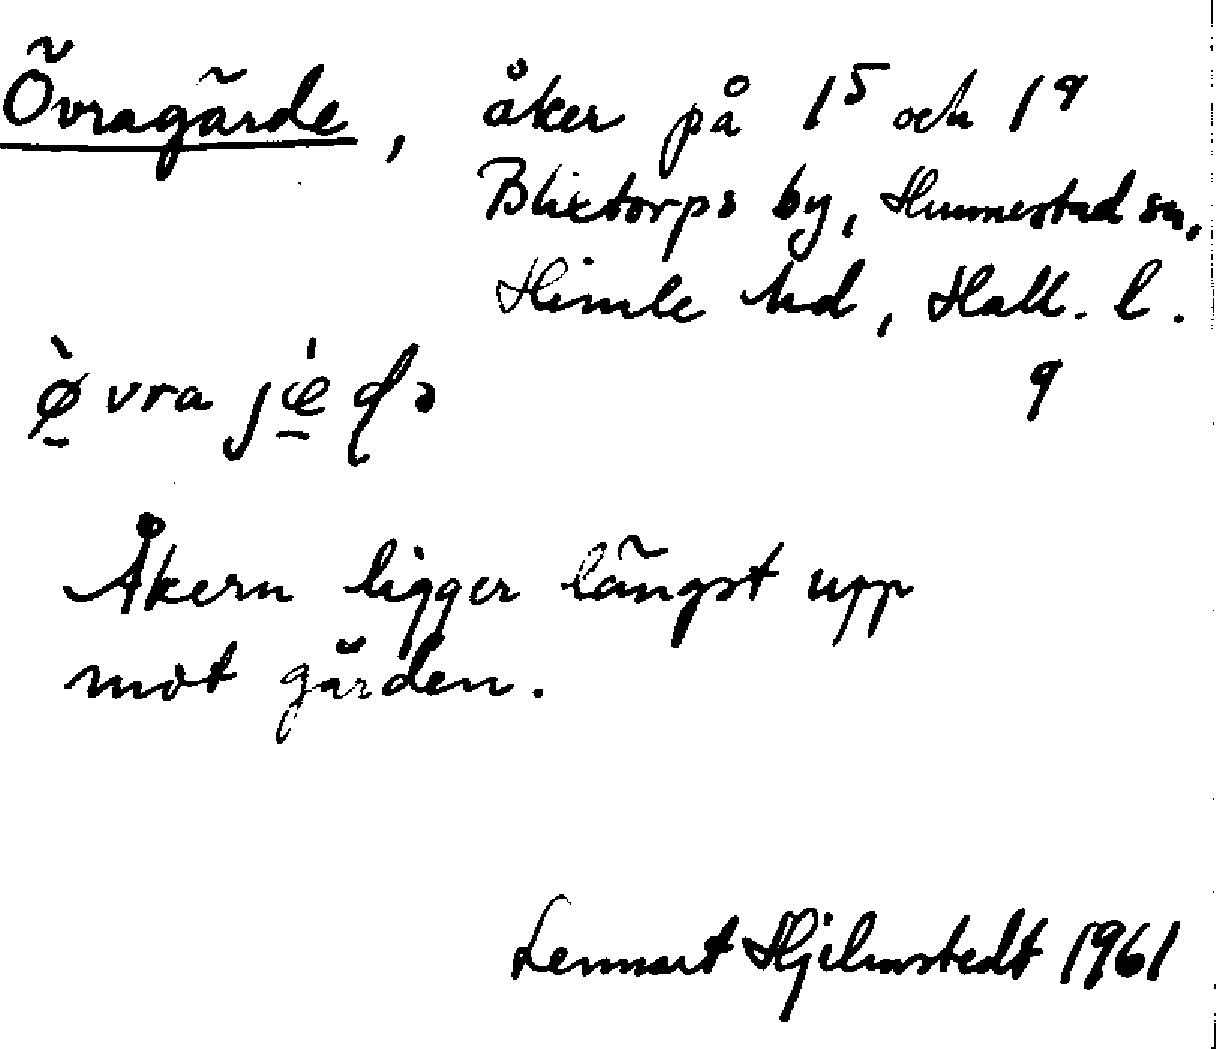 Övragärde, åker på 1⁵ och 1⁹
Blixtorps by, Hunnestad sn,
Himle hd, Hall. l.
9
Åkern ligger längst upp
mot gården.
Lennart Hjelmstedt 1961